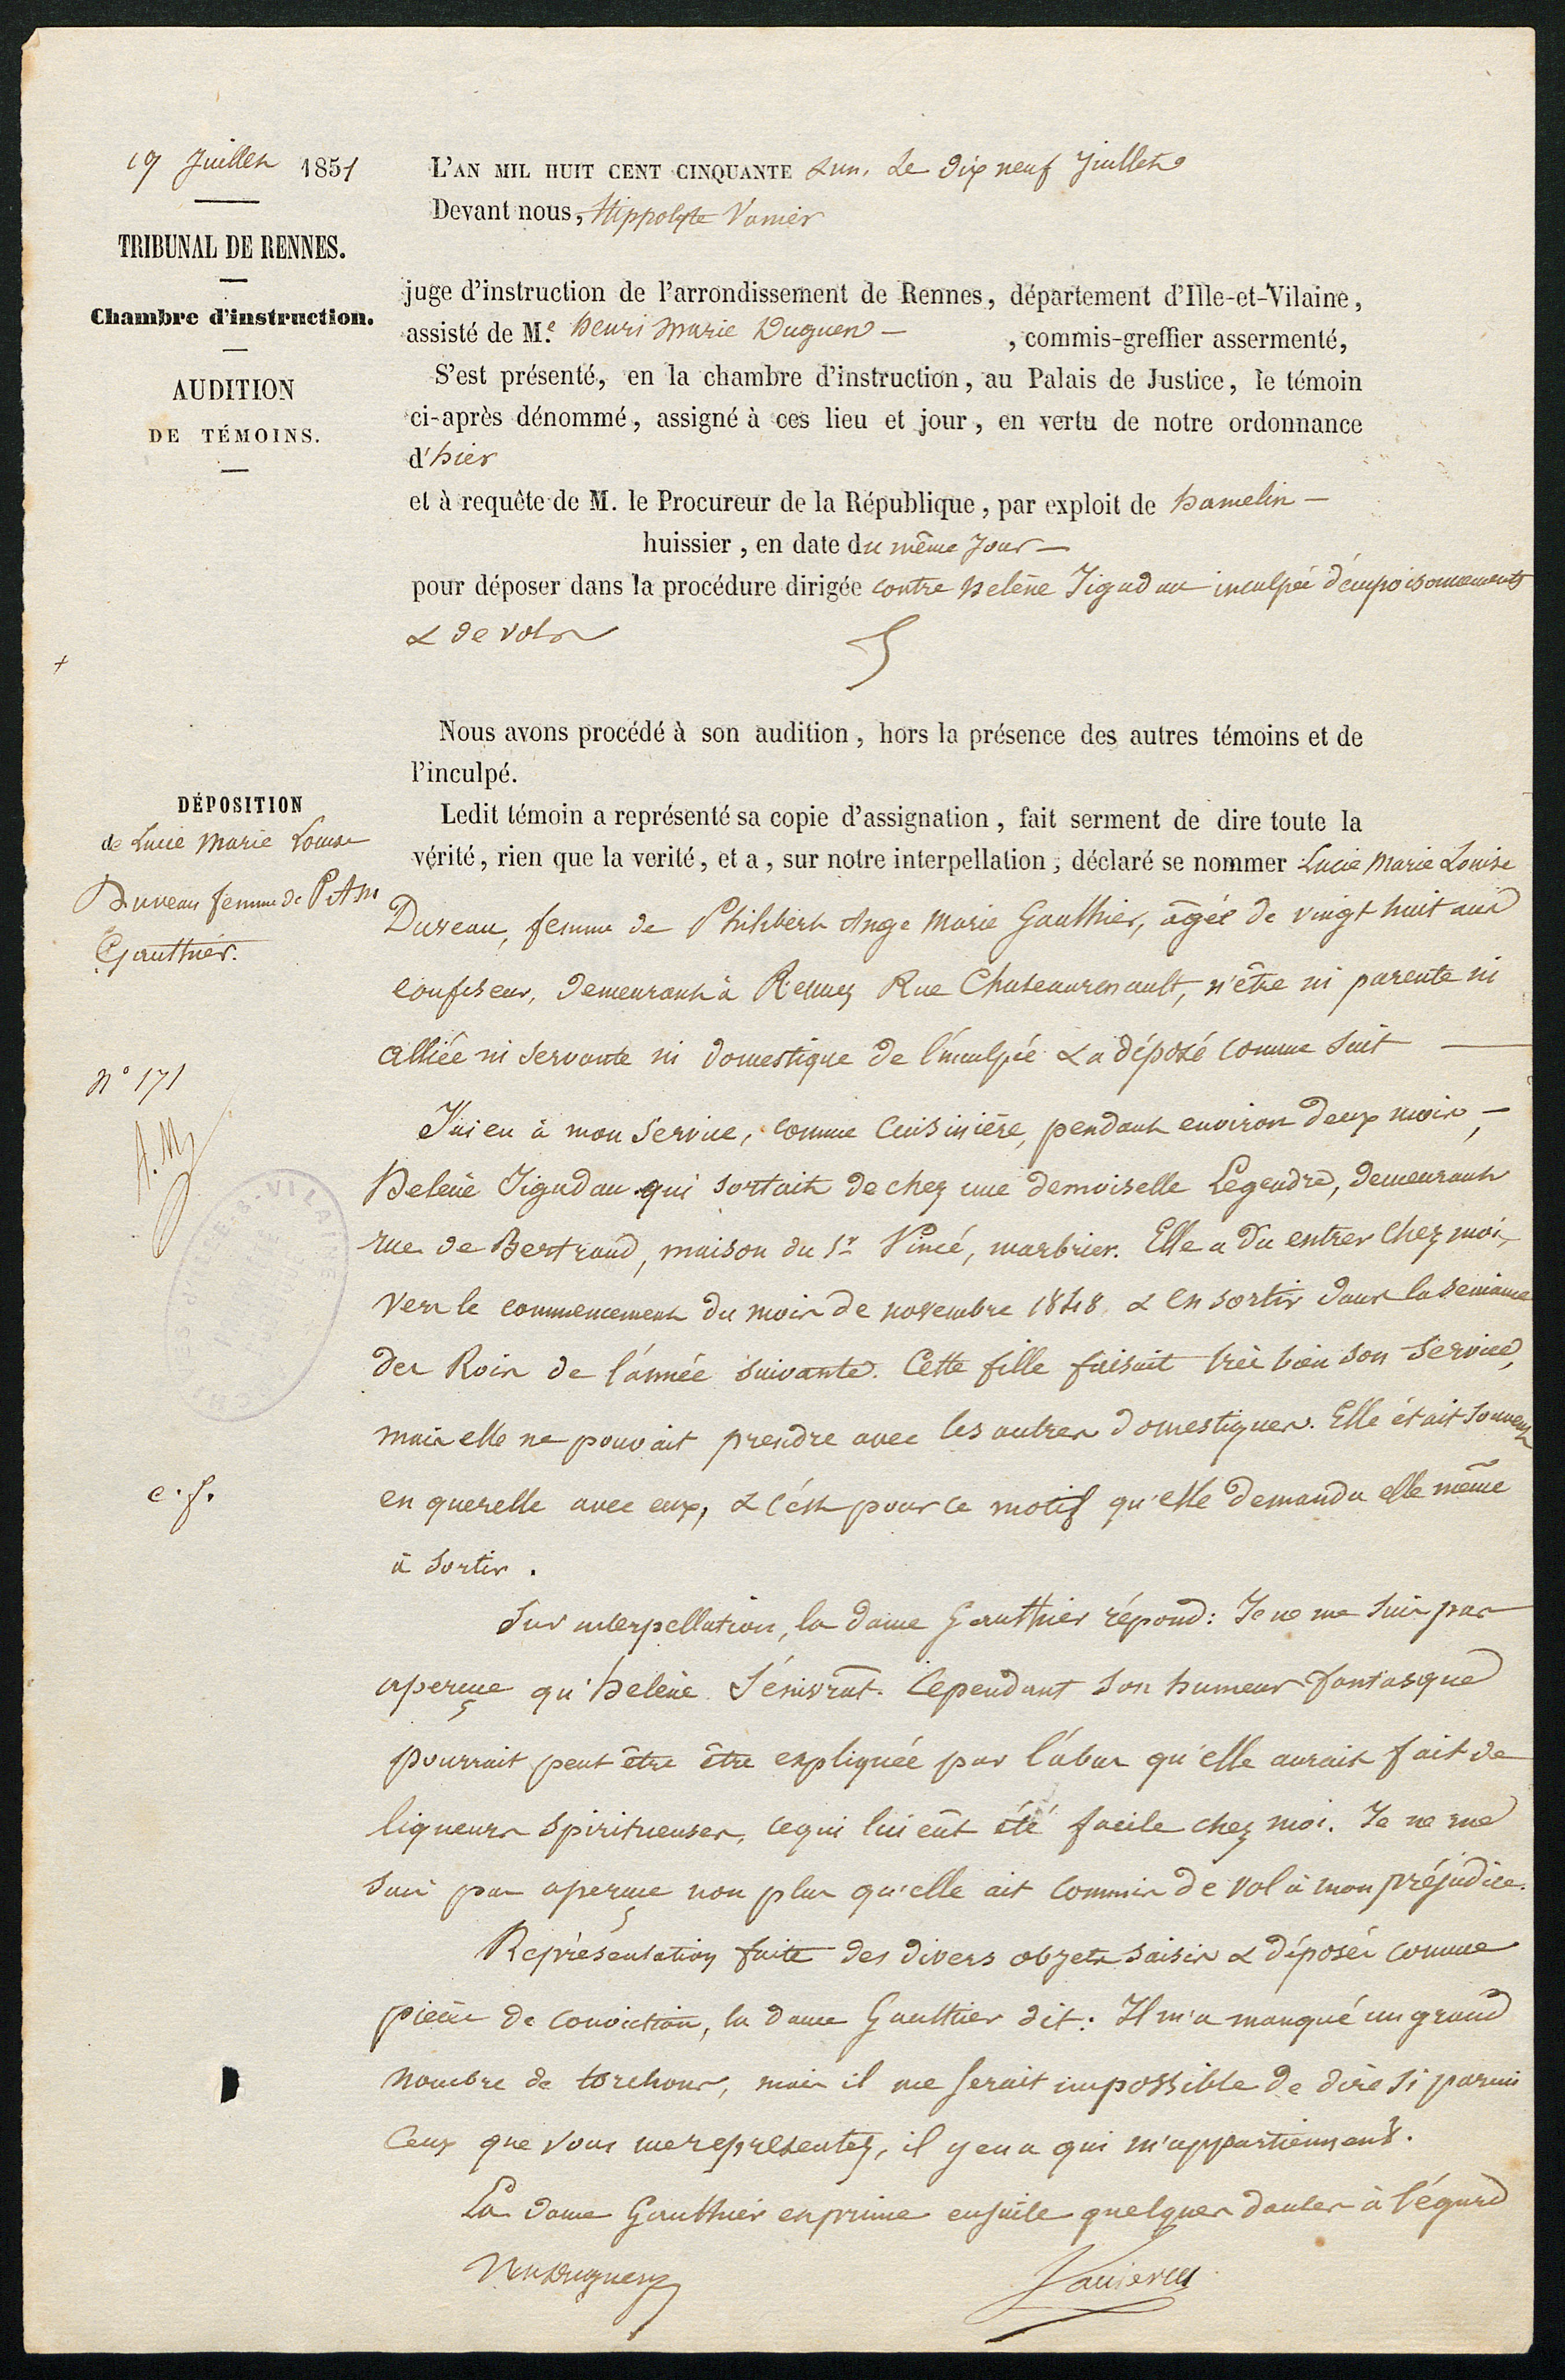 19 Juillet 1851
TRIBUNAL DE RENNES.
Chambre d'instruction.
AUDITION
DE TÉMOINS.
L'AN MIL HUIT CENT CINQUANTE & un, le dix neuf Juillet
Devant nous, Hippolyte Vanier
juge d'instruction de l'arrondissement de Rennes, département d'Ille-et-Vilaine,
assisté de Me. Henri Marie Duguen — , commis-greffier assermenté,
S'est présenté, en la chambre d'instruction, au Palais de Justice, le témoin
ci-après dénommé, assigné à ces lieu et jour, en vertu de notre ordonnance
d'hier
et à requête de M. le Procureur de la République, par exploit de hamelin —
huissier, en date du même jour —
pour déposer dans la procédure dirigée contre helène Jigadau inculpée d'empoisonnements
& de vols
Nous avons procédé à son audition, hors la présence des autres témoins et de
l'inculpé.
DÉPOSITION
de Lucie Marie Louise
Duveau femme de P. A. M.
Gauthier.
N° 171
c. f.
Ledit témoin a représenté sa copie d'assignation, fait serment de dire toute la
vérité, rien que la verité, et a, sur notre interpellation, déclaré se nommer Lucie Marie Louise
Duveau, femme de Philibert Ange Marie Gauthier, âgée de vingt huit ans
confiseur, demeurant à Rennes Rue Chateaurenault, n'être ni parente ni
alliée ni servante ni domestique de l'inculpée & a déposé comme suit —
J'ai eu à mon service, comme cuisinière, pendant environ deux mois, —
helène Jigadau qui sortait de chez une demoiselle Legendre, demeurant
rue de Bertrand, maison du Sr Vincé, marbrier. Elle a du entrer chez moi,
vers le commencement du mois de novembre 1848 & en sortir dans la semaine
des Rois de l'année suivante. Cette fille faisait très bien son service,
mais elle ne pouvait prendre avec les autres domestiques. Elle était souvent
en querelle avec eux, & c'est pour ce motif qu'elle demanda elle même
à sortir.
Sur interpellation, la dame Gauthier répond: Je ne me suis pas
aperçue qu'helène s'énivrât. Cependant son humeur fantasque
pourrait peut être être expliquée par l'abus qu'elle aurait fait de
liqueurs spiritueuses, ce qui lui eût été facile chez moi. Je ne me
suis pas aperçue non plus qu'elle ait commis de vol à mon préjudice.
Représentation faite des divers objets saisis & déposés comme
pièces de conviction, la dame Gauthier dit: Il m'a manqué un grand
nombre de torchons, mais il me serait impossible de dire si parmi
ceux que vous me représentez, il y en a qui m'appartiennent.
La dame Gauthier exprime ensuite quelques doutes à l'égard
Duguen
Vanier